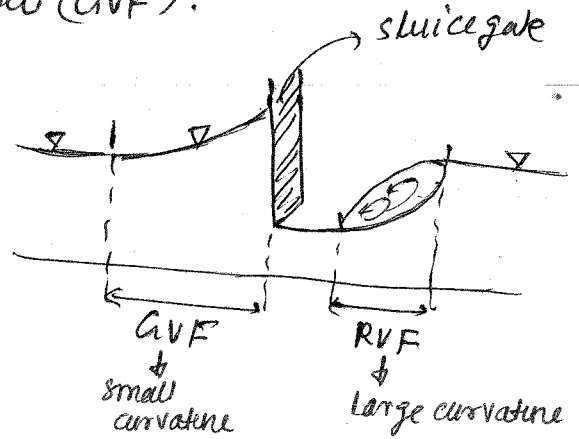 (GVF).
sluice gate
GVF
small
curvature
RVF
Large curvature